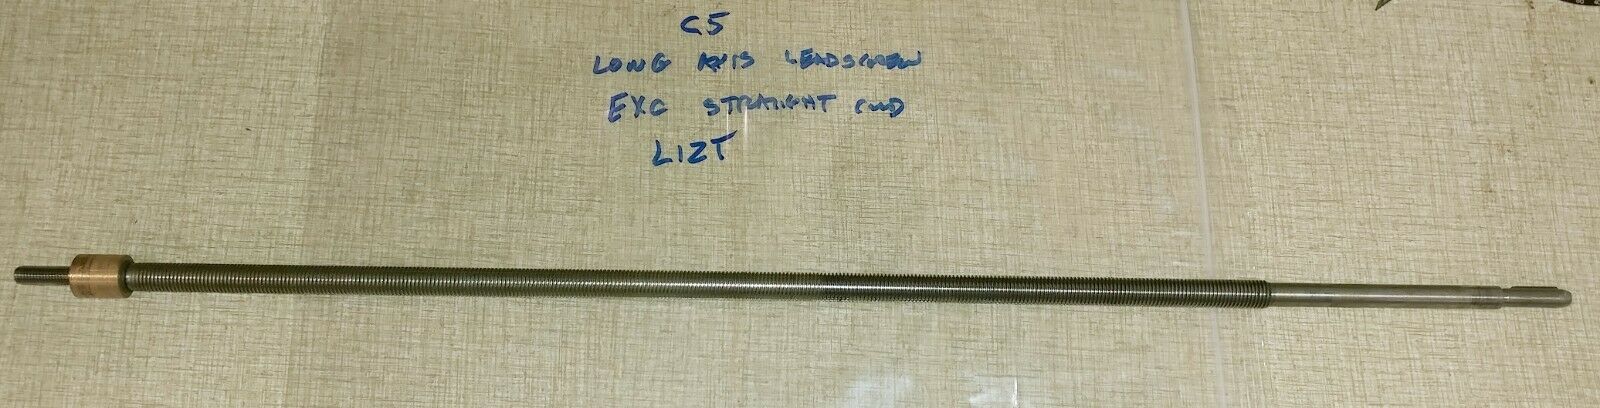 C5
LONG AXIS LEADSCREW
EXC STRAIGHT CND
LIZT